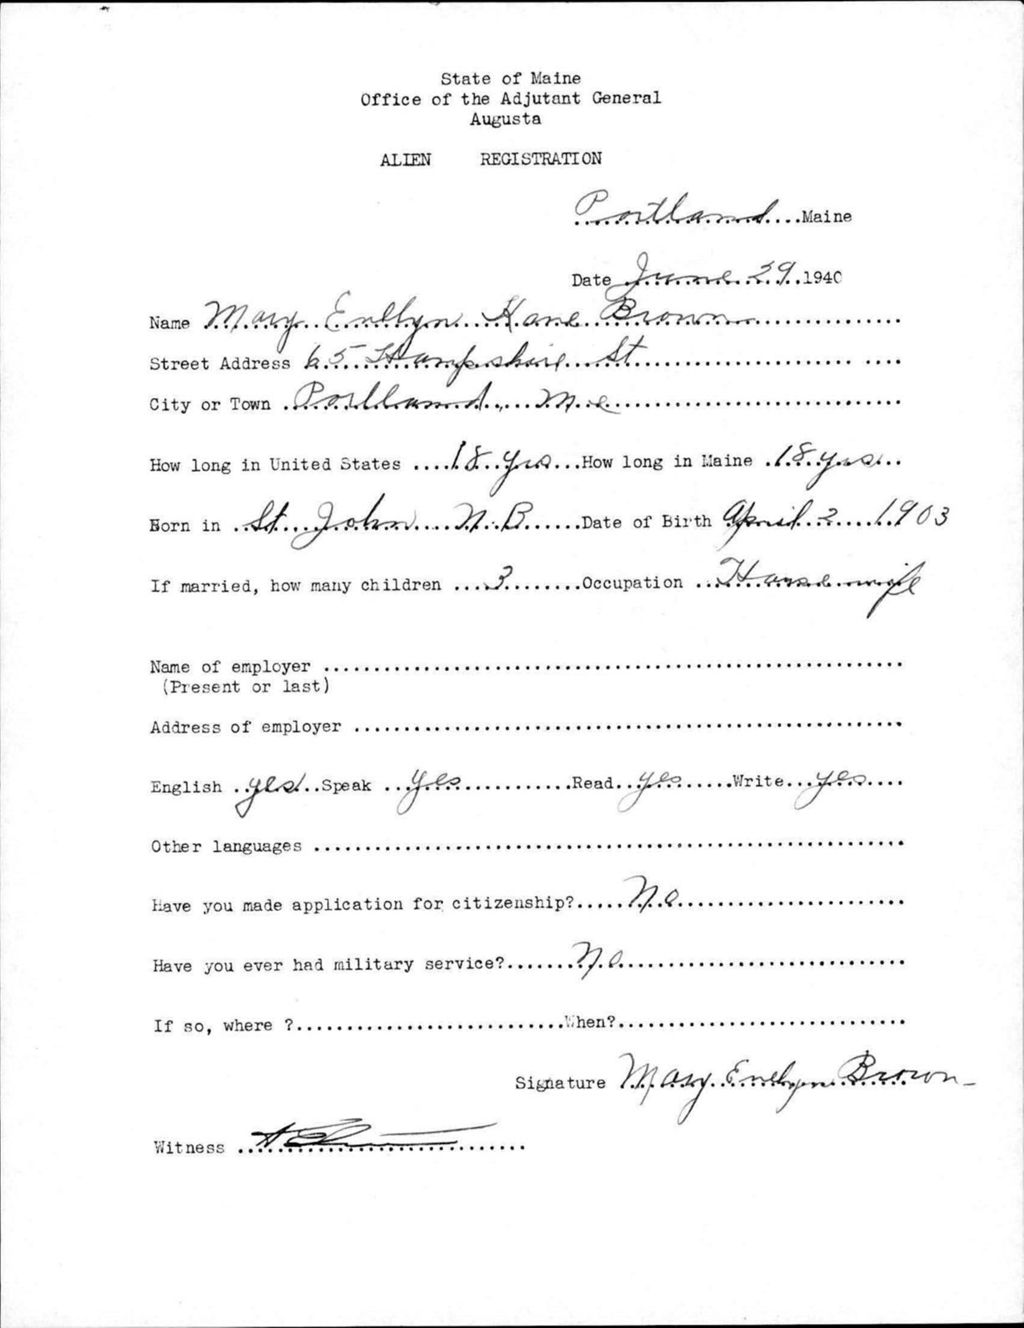 State of Maine
Office of the Adjutant General
Augusta
ALIEN REGISTRATION
Portland....Maine
Date June 29, 1940
Name Mary Evelyn Kane Brown
Street Address 65 Hampshire St
City or Town Portland, Me
How long in United States 18 yrs How long in Maine 18 yrs
Born in St John N.B. Date of Birth April 2 1903
If married, how many children 3 Occupation House wife
Name of employer
(Present or last)
Address of employer
English yes Speak yes Read yes Write yes
Other languages
Have you made application for citizenship? No
Have you ever had military service? No
If so, where ? When?
Signature Mary Evelyn Brown
Witness